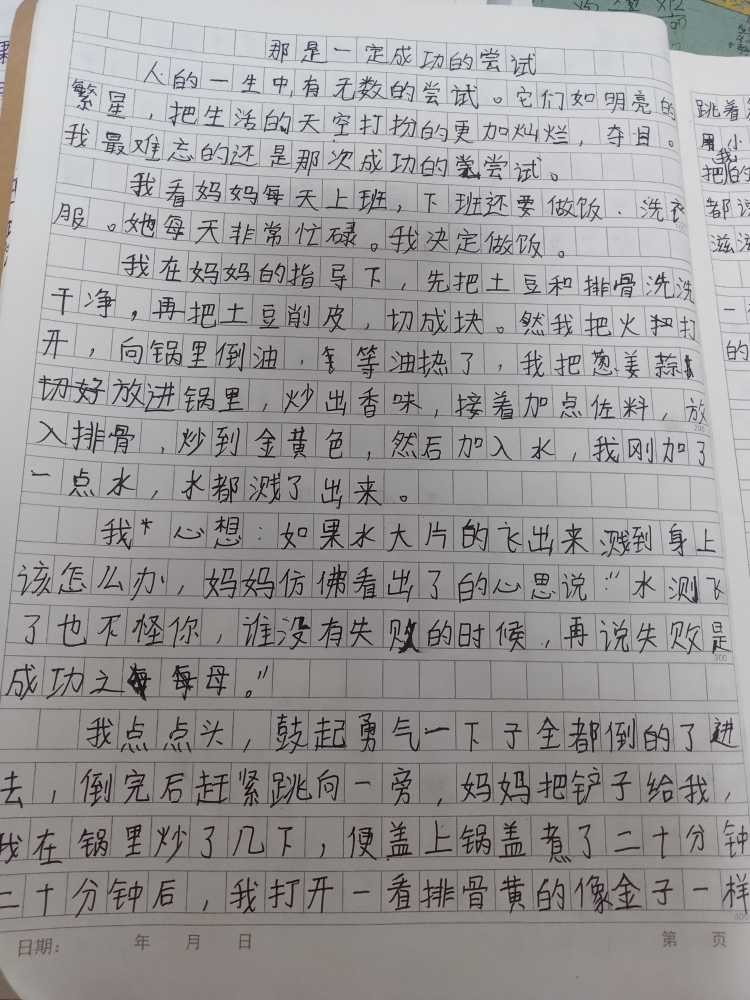 那是一定成功的尝试
人的一生中,有无数的尝试。它们如明亮的
繁星，把生活的天空打扮的更加灿烂，夺目。
我最难忘的还是那次成功的尝试。
我看妈妈每天上班，下班还要做饭、洗衣
服。她每天非常忙碌。我决定做饭。
我在妈妈的指导下，先把土豆和排骨洗洗
干净，再把土豆削皮，切成块。然我把火打
开，向锅里倒油，等油热了，我把葱姜蒜
切好放进锅里，炒出香味，接着加点佐料，放
入排骨，炒到金黄色，然后加入水，我刚加了
一点水，水都溅了出来。
我心想：如果水大片的飞出来溅到身上
该怎么办，妈妈仿佛看出了的心思说：“水测飞
了也不怪你，谁没有失败的时候，再说失败是
成功之母。”
我点点头，鼓起勇气一下子全都倒的了进
去，倒完后赶紧跳向一旁，妈妈把铲子给我，
我在锅里炒了几下，便盖上锅盖煮了二十分钟
二十分钟后，我打开一看排骨黄的像金子一样
日期： 年 月 日 第 页
跳着
用小
我
把的
都
滋滋
一
的